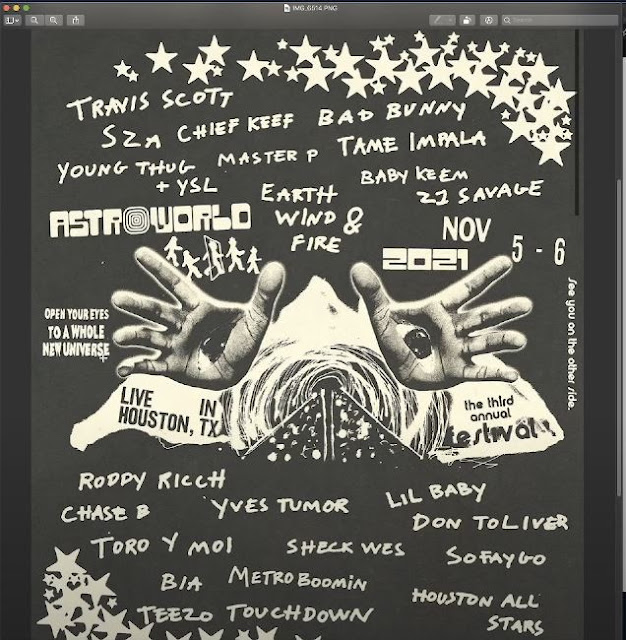 IMG_6514.PNG
Search
TRAVIS SCOTT
SZA CHIEF KEEF BAD BUNNY
YOUNG THUG + YSL
MASTER P TAME IMPALA
EARTH WIND & FIRE
BABY KEEM
21 SAVAGE
ASTROWORLD
NOV 5 - 6
2021
See you on the other side.
OPEN YOUR EYES
TO A WHOLE
NEW UNIVERSE
LIVE IN
HOUSTON, TX
the third
annual
festival
RODDY RICCH
LIL BABY
CHASE B
YVES TUMOR
DON TOLIVER
TORO Y MOI
SHECK WES
SOFAYGO
BIA METROBOOMIN
TEEZO TOUCHDOWN
HOUSTON ALL
STARS